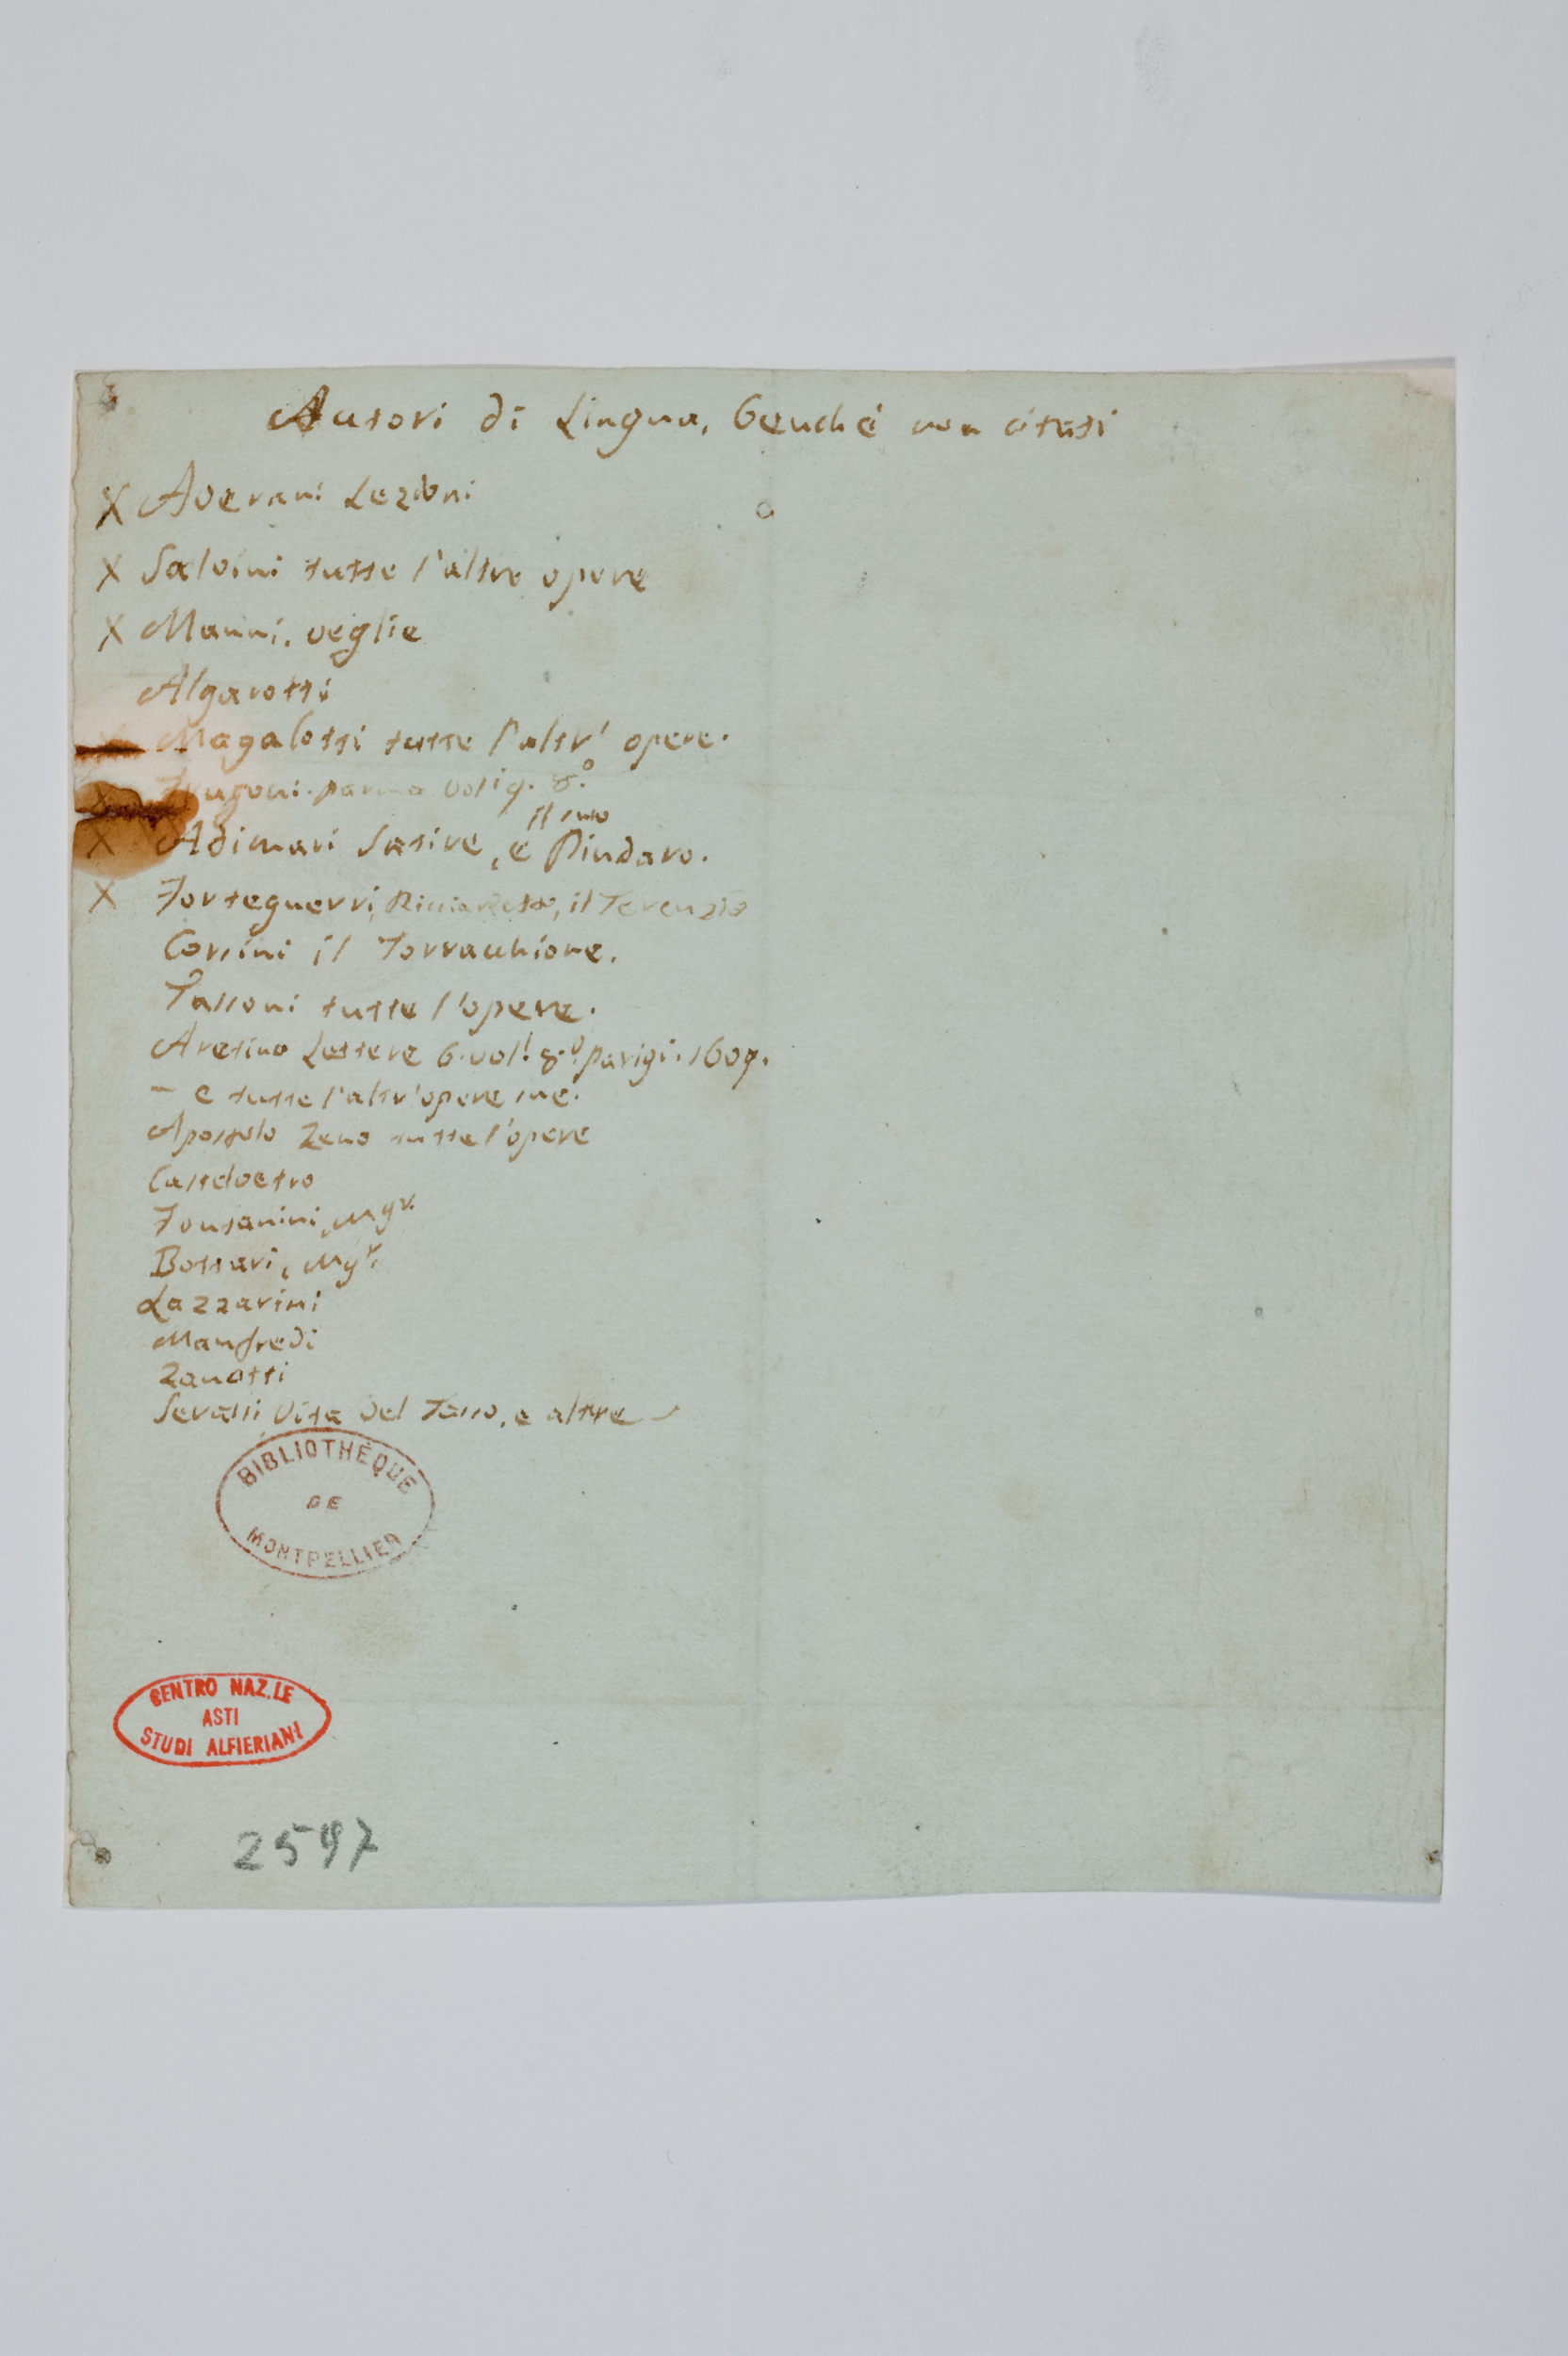 Autori di Lingua, benchè non citati
X Averani Lezioni
X Salvini tutte l'altre opere
X Manni. veglie
Algarotti
Magalotti tutte l'altr' opere.
Frugoni. parma vol i 9. 8.º
il suo
X Adimari Satire, e Pindaro.
X Forteguerri, Ricciardetto, il Terenzio
Corsini il Torracchione.
Tassoni tutte l'opere.
Aretino Lettere 6. vol! 8.º parigi. 1609.
- e tutte l'altr'opere sue.
Apostolo Zeno tutte l'opere
Castelvetro
Fontanini, Mgr.
Bottari, Mgr.
Lazzarini
Manfredi
Zanotti
Serassi Vita del Tasso, e altre
BIBLIOTHÈQUE
DE
MONTPELLIER
CENTRO NAZ.LE
ASTI
STUDI ALFIERIANI
2597